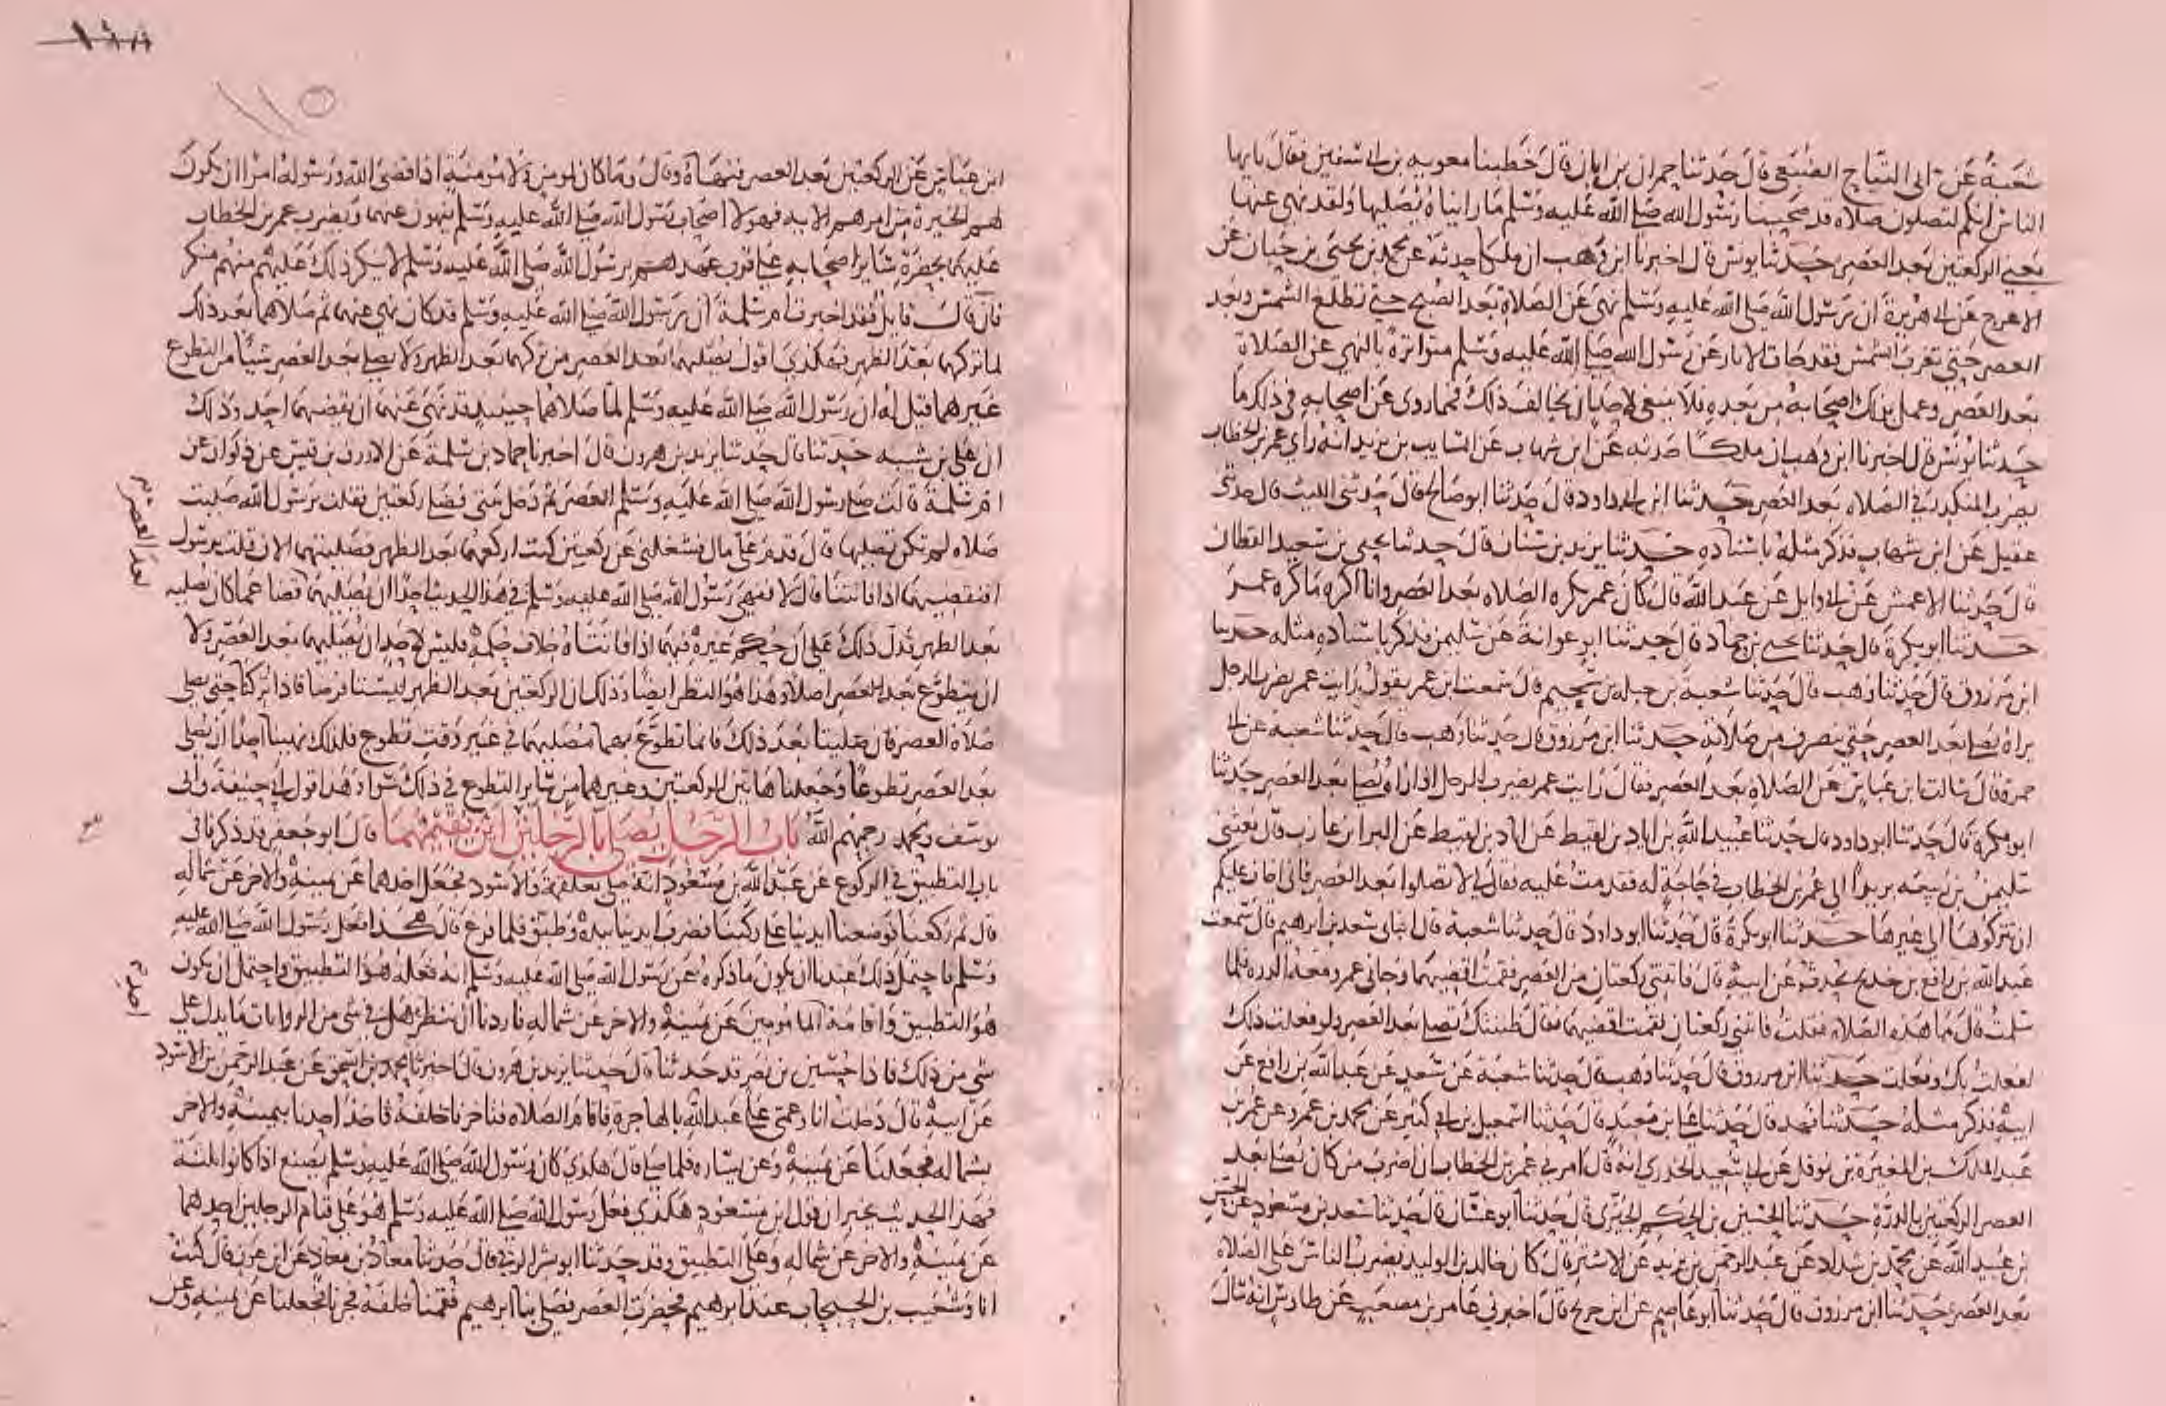 شعبة عن ابى التياح الضبعى قال حدثنا حمران بن ابان قال خطبنا معويه بن ابى سفين فقال يايها
الناس انكم لتصلون صلاه قد صحبنا رسول الله صلى الله عليه وسلم ما رايناه يصليها ولقد نهى عنها
يعنى الركعتين بعد العصر حدثنا يونس قال اخبرنا ابن وهب ان ملكا حدثه عن محمد بن يحيى بن حبان عن
الاعرج عن ابى هريرة ان رسول الله صلى الله عليه وسلم نهى عن الصلاة بعد الصبح حتى تطلع الشمس وبعد
العصر حتى تغرب الشمس فقد جات الاثار عن رسول الله صلى الله عليه وسلم متواترة بالنهى عن الصلاة
بعد العصر وعمل بذلك اصحابه من بعده فلا ينبغى لاحد ان يخالف ذلك فمما روى عن اصحابه فى ذلك ما
حدثنا يونس قال اخبرنا ابن وهب ان ملكا حدثه عن ابن شهاب عن السايب بن يزيد انه راى عمر بن الخطاب
يضرب المنكدر فى الصلاه بعد العصر حدثنا ابن ابى داود قال حدثنا ابو صالح قال حدثنى الليث قال حدثنى
عقيل عن ابن شهاب فذكر مثله باسناده حدثنا يزيد بن سنان قال حدثنا يحيى بن سعيد القطان
قال حدثنا الاعمش عن ابى وايل عن عبد الله قال كان عمر يكره الصلاه بعد العصر وانا اكره ما كره عمر
حدثنا ابو بكرة قال حدثنا يحيى بن حماد قال حدثنا ابو عوانة عن سليمن فذكر باسناده مثله حدثنا
ابن مرزوق قال حدثنا وهب قال حدثنا شعبة عن جبله بن سحيم قال سمعت ابن عمر يقول رايت عمر يضرب الرجل
يراه يصلى بعد العصر حتى ينصرف من صلاته حدثنا ابن مرزوق قال حدثنا وهب قال حدثنا شعبه عن ابى
حمرة قال سالت ابن عباس عن الصلاه بعد العصر فقال رايت عمر يضرب الرجل اذا راه يصلى بعد العصر حدثنا
ابو بكره قال حدثنا ابو داود قال حدثنا عبيد الله بن اياد بن لقيط عن اياد بن لقيط عن البرا بن عازب قال بعثنى
سليمن بن ربيعه بريدا الى عمر بن الخطاب فى حاجة له فقدمت عليه فقال لى لا تصلوا بعد العصر فانى اخاف عليكم
ان تتركوها الى غيرها حدثنا ابو بكرة قال حدثنا ابو داود قال حدثنا شعبة قال انبانى سعد بن ابرهيم قال سمعت
عبد الله بن رافع بن خديج يحدث عن ابيه قال فاتتنى ركعتان من العصر فقمت اقضيهما وجانى عمر ومعه الدره فلما
سلمت قال ما هذه الصلاه فقلت فاتتنى ركعتان فقمت اقضيهما فقال ظننتك تصلى بعد العصر ولو فعلت ذلك
لفعلت بك وفعلت حدثنا ابن مرزوق قال حدثنا وهب قال حدثنا شعبة عن سعد عن عبد الله بن رافع عن
ابيه فذكر مثله حدثنا فهد قال حدثنا على بن معبد قال حدثنا اسمعيل بن ابى كثير عن محمد بن عمرو عن عمر بن
عبد الملك بن المغيرة بن نوفل عن ابى سعيد الخدرى انه قال امرنى عمر بن الخطاب ان اضرب من كان يصلى بعد
العصر الركعتين بالدرة حدثنا الحسين بن الحكم الحبرى قال حدثنا ابو غسان قال حدثنا سعد بن مسعود عن الحسن
بن عبيد الله عن محمد بن شداد عن عبد الرحمن بن يزيد عن الاشتر قال كان خالد بن الوليد يضرب الناس على الصلاة
بعد العصر حدثنا ابن مرزوق قال حدثنا ابو عاصم عن ابن جريج قال اخبرنى عامر بن مصعب عن طاوس انه سال
١١٥
ابن عباس عن الركعتين بعد العصر فنهاه وقال وما كان لمومن ولا مومنة اذا قضى الله ورسوله امرا ان يكون
لهم الخيرة من امرهم الايه فهولا اصحاب رسول الله صلى الله عليه وسلم ينهون عنهما ويضرب عمر بن الخطاب
عليهما بحضرة ساير اصحابه على قرب عهدهم برسول الله صلى الله عليه وسلم لا ينكر ذلك عليهم منهم منكر
فان قال قايل فقد اخبرت ام سلمة ان رسول الله صلى الله عليه وسلم قد كان نهى عنهما ثم صلاهما بعد ذلك
لما تركهما بعد الظهر فهكذى اقول يصليهما بعد العصر من تركهما بعد الظهر ولا يصلى بعد العصر شيا من التطوع
غيرهما قيل له ان رسول الله صلى الله عليه وسلم لما صلاهما حينيذ قد نهى عنهما ان يقضيهما احد وذلك
ان على بن شيبه حدثنا قال حدثنا يزيد بن هرون قال اخبرنا حماد بن سلمة عن الازرق بن قيس عن ذكوان عن
ام سلمة قالت صلى رسول الله صلى الله عليه وسلم العصر ثم دخل بيتى فصلى ركعتين فقلت يرسول الله صليت
صلاه لم تكن تصليها قال قدم على مال فشغلنى عن ركعتين كنت اركعهما بعد الظهر فصليتهما الان قلت يرسول
افنقضيهما اذا فاتتنا قال لا فنهى رسول الله صلى الله عليه وسلم فى هذا الحديث احدا ان يصليهما قضا عما كان يصليه
بعد الظهر فدل ذلك على ان حكم غيره فيهما اذا فاتتاه خلاف حكمه فليس لاحد ان يصليهما بعد العصر ولا
ان يتطوع بعد العصر اصلا وهذا هو النظر ايضا وذلك ان الركعتين بعد الظهر ليستا فرضا فاذا تركتا حتى يصلى
صلاه العصر فان صليتا بعد ذلك فانما تطوع بهما مصليهما فى غير وقت تطوع فلذلك نهينا احدا ان يصلى
بعد العصر تطوعا وجعلنا هاتين الركعتين وغيرهما من ساير التطوع فى ذلك سوا وهذا قول ابى حنيفة وابى
يوسف ومحمد رحمهم الله باب الرجل يصلى بالرجلين اين يقيمهما قال ابو جعفر قد ذكرنا فى
باب التطبيق فى الركوع عن عبد الله بن مسعود انه صلى بعلقمة والاسود فجعل احدهما عن يمينه والاخر عن شماله
قال ثم ركعنا فوضعنا ايدينا على ركبنا فضرب ايدينا بيده وطبق فلما فرغ قال هكذا فعل رسول الله صلى الله عليه
وسلم فاحتمل ذلك عندنا ان يكون ما ذكره عن رسول الله صلى الله عليه وسلم انه فعله هو التطبيق واحتمل ان يكون
هو التطبيق واقامة المامومين عن يمينه والاخر عن شماله فاردنا ان ننظر هل فى شى من الروايات ما يدل على
شى من ذلك فاذا حسين بن نصر قد حدثنا قال حدثنا يزيد بن هرون قال اخبرنا محمد بن اسحق عن عبد الرحمن بن الاسود
عن ابيه قال دخلت انا وعمى على عبد الله بالهاجرة فاقام الصلاه فتاخرنا خلفه فاخذ احدنا بيمينه والاخر
بشماله فجعلنا عن يمينه وعن يساره فلما صلى قال هكذى كان رسول الله صلى الله عليه وسلم يصنع اذا كانوا ثلثة
فهذا الحديث يخبر ان قول ابن مسعود هكذى فعل رسول الله صلى الله عليه وسلم هو على قيام الرجلين احدهما
عن يمينه والاخر عن شماله وعلى التطبيق وقد حدثنا ابو بشر الرقى قال حدثنا معاذ بن معاذ عن ابن عون قال كنت
انا وشعيب بن الحبحاب عند ابرهيم فحضرت العصر فصلى بنا ابرهيم فقمنا خلفه فجرنا فجعلنا عن يمينه وعن
بعد العصر
احدهم